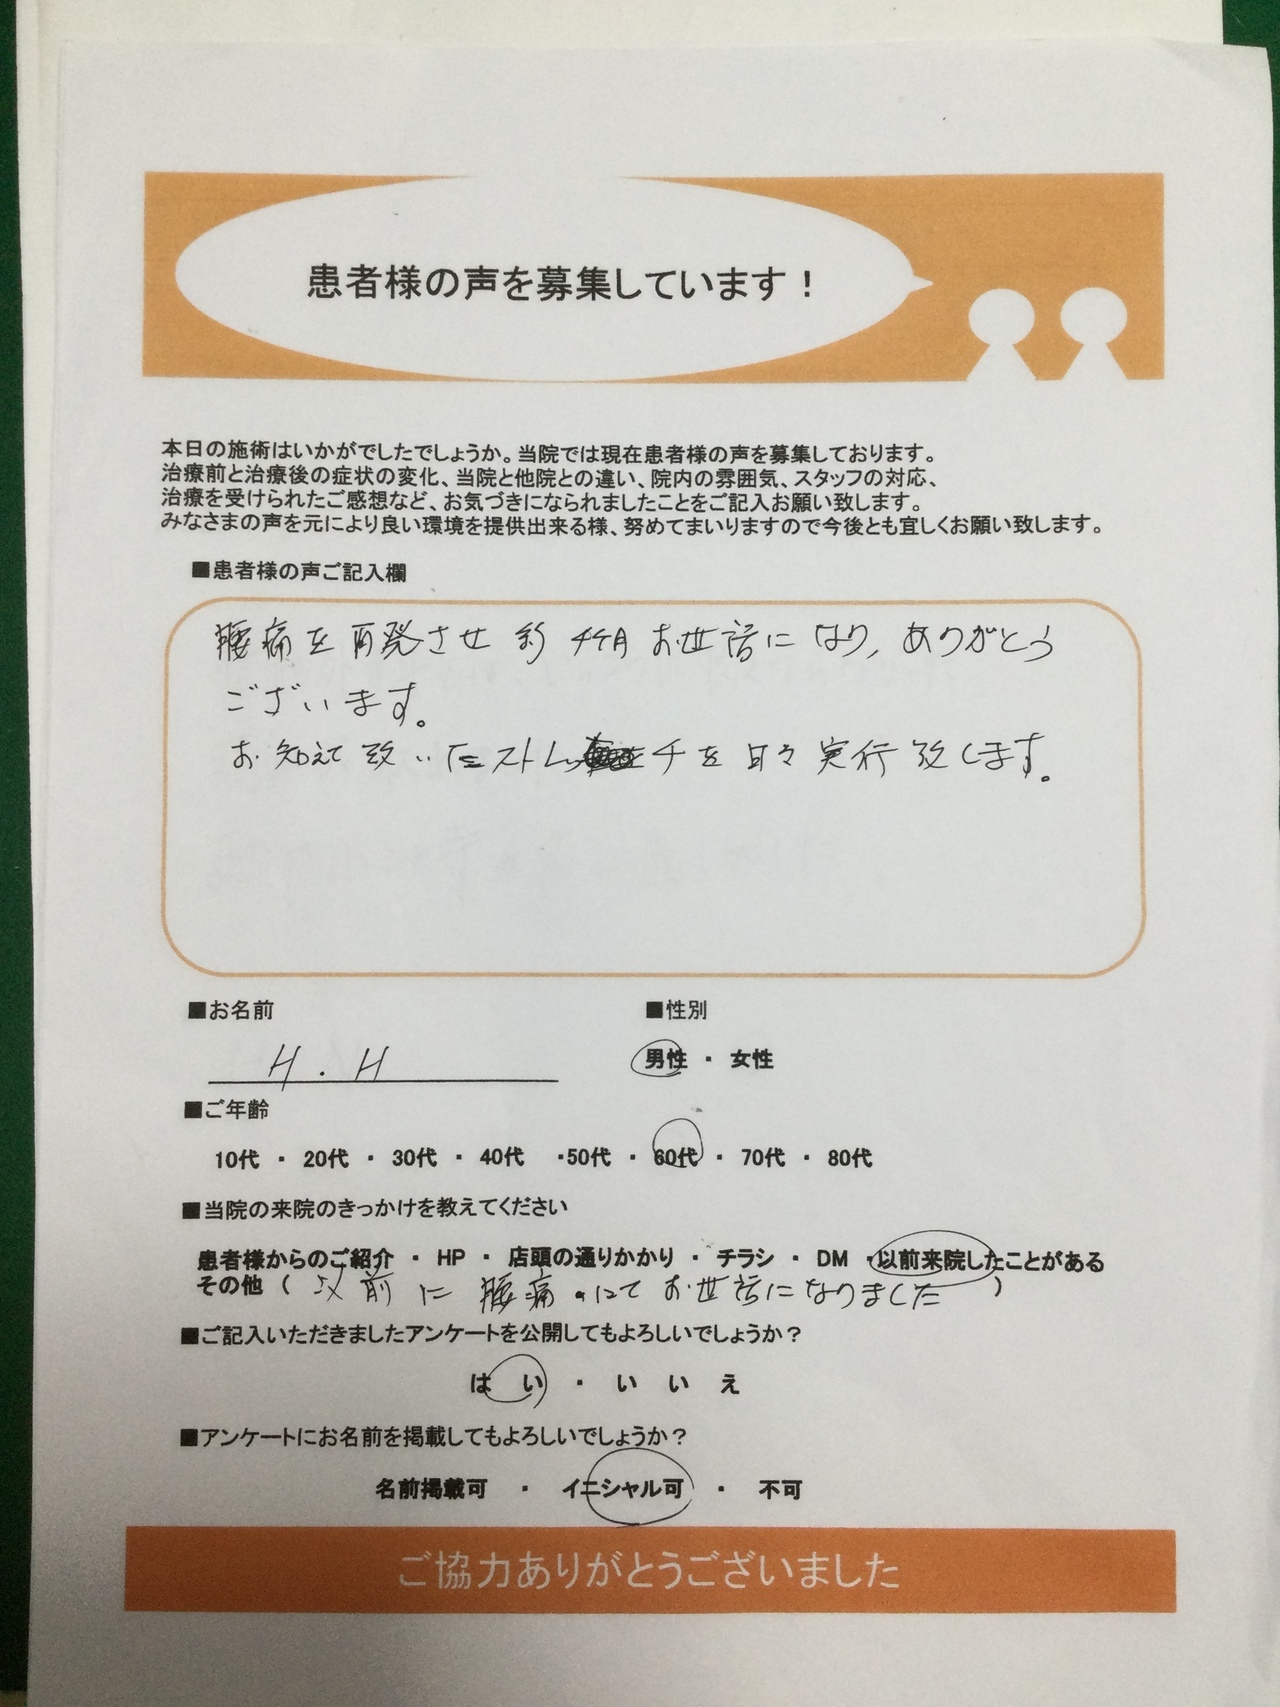 患者様の声を募集しています！
本日の施術はいかがでしたでしょうか。当院では現在患者様の声を募集しております。
治療前と治療後の症状の変化、当院と他院との違い、院内の雰囲気、スタッフの対応、
治療を受けられたご感想など、お気づきになられましたことをご記入お願い致します。
みなさまの声を元により良い環境を提供出来る様、努めてまいりますので今後とも宜しくお願い致します。
■患者様の声ご記入欄
腰痛を再発させ約4ケ月お世話になり、ありがとう
ございます。
お知えて致いたストレッチを日々実行致します。
■お名前 ■性別
H.H 男性 ・ 女性
■ご年齢
10代 ・ 20代 ・ 30代 ・ 40代 ・50代 ・ 60代 ・ 70代 ・ 80代
■当院の来院のきっかけを教えてください
患者様からのご紹介 ・ HP ・ 店頭の通りかかり ・ チラシ ・ DM ・以前来院したことがある
その他 ( 以前に腰痛にてお世話になりました )
■ご記入いただきましたアンケートを公開してもよろしいでしょうか？
はい ・ いいえ
■アンケートにお名前を掲載してもよろしいでしょうか？
名前掲載可 ・ イニシャル可 ・ 不可
ご協力ありがとうございました